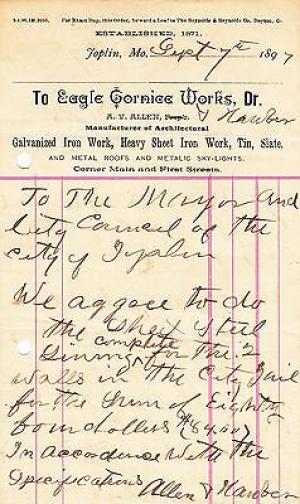 For Exact Dup. this Order, Forward a Leaf to The Reynolds & Reynolds Co. Dayton, O.
ESTABLISHED, 1871.
Joplin, Mo. Sept 7th 1897
To Eagle Cornice Works, Dr.
A. V. ALLEN, Prop'r. & Hawber
Manufacturer of Architectural
Galvanized Iron Work, Heavy Sheet Iron Work, Tin, Slate,
AND METAL ROOFS AND METALIC SKY-LIGHTS.
Corner Main and First Streets.
To The Mayor and
City Council of the
City of Joplin
We aggree to do
the Sheet Steel
complete
Lining ^ for the 2
Walls in the City Jail
for the Sum of Eighty
four dollars ($84.00)
In accordence With the
Specifications Allen & Hawber